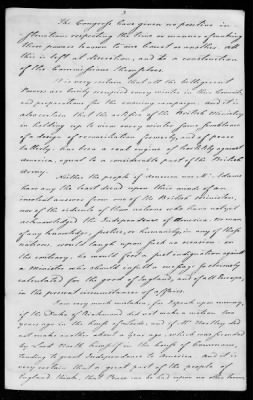 3
The Congress have given no positive in
structions respecting the time or manner of making
these powers known to one Court or another. All
this is left at discretion, and to a construction
of the Commissions themselves.
It is very certain that all the belligerent
Powers are busily occupied every winter in their Councils,
and preparations for the ensuing campaign, and it is
also certain that the artifice of the British Ministry
in holding up to view every winter some
of a design of conciliation formerly, and of peace
latterly, has been a real engine of hostility against
America, equal to a considerable part of the British
Army.
Neither the people of America nor Mr. Adams
have any the least dread upon their minds of an
insolent answer from one of the British Ministers,
nor of the ridicule of those nations who have not yet
acknowledged the Independence of America. No man
of any knowledge, justice, or humanity, in any of those
nations, would laugh upon such an occasion: on
the contrary, he would feel a just indignation against
a Minister who should insult a message so
calculated for the good of England, and of all Europe,
in the present circumstances of affairs.
I am very much mistaken, for I speak upon memory,
if the Duke of Richmond did not make a motion two
years ago in the house of Lords, and if Mr. Hartley did
not make another about a year ago, which was seconded
by Lord North himself in the house of Commons,
tending to grant Independence to America. And it is
very certain that a great part of the people of
England think, that Peace can be had upon no other terms.